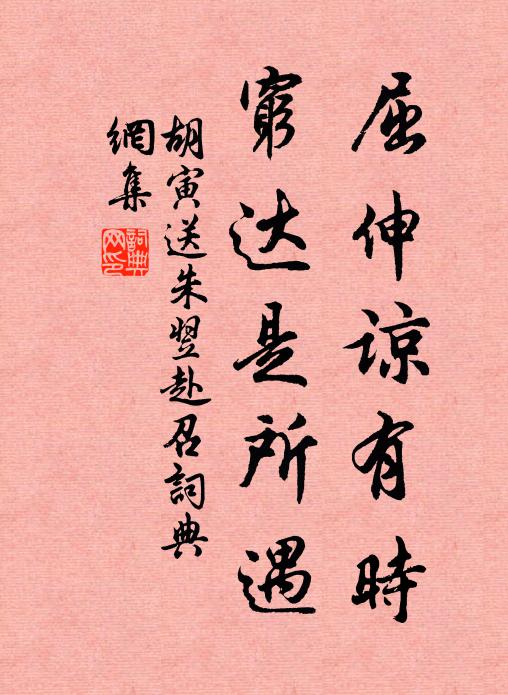 屈伸谅有時
窮达是所遇
胡寅送朱翌赴召詞典
網集
詞典
网印